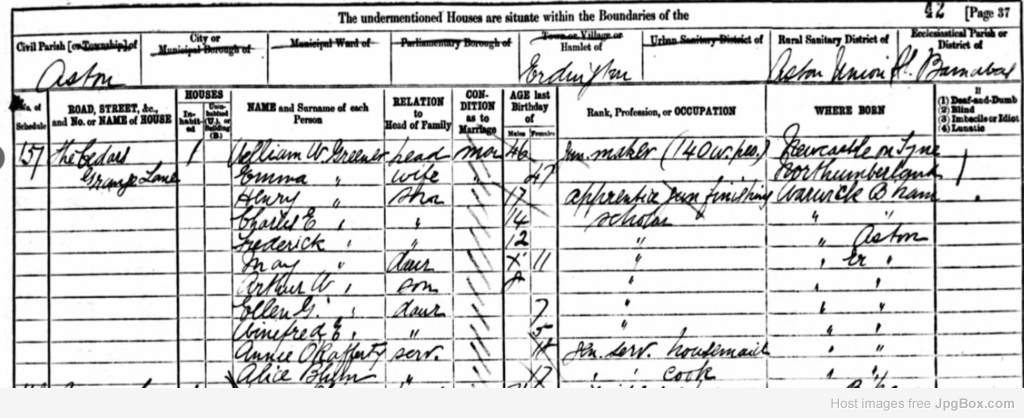 The undermentioned Houses are situate within the Boundaries of the 42 [Page 37
Civil Parish [or Township] of City or Municipal Borough of Municipal Ward of Parliamentary Borough of Town or Village or Hamlet of Urban Sanitary District of Rural Sanitary District of Ecclesiastical Parish or District of
Aston Erdington Aston Union St. Barnabas
No. of Schedule ROAD, STREET, &c., and No. or NAME of HOUSE HOUSES Inhabited Uninhabited (U.), or Building (B.) NAME and Surname of each Person RELATION to Head of Family CONDITION as to Marriage AGE last Birthday of Males Females Rank, Profession, or OCCUPATION WHERE BORN If (1) Deaf-and-Dumb (2) Blind (3) Imbecile or Idiot (4) Lunatic
157 The Cedars 1 William W. Greener head mar 46 Gun maker (140 w. peo.) Newcastle on Tyne
Grange Lane Emma " wife 47 Northumberland
Henry " son 17 apprentice Gun finishing Warwick B'ham
Charles E " " 14 scholar " "
Frederick " " 12 " " Aston
May " daur 11 " " Er "
Arthur W " son 8 " " "
Ellen G. " daur 7 " " "
Winefred E. " " 5 " " "
Annie O'Rafferty serv. 18 Gen. serv. housemaid " "
Alice " 17 " cook " "
Host images free JpgBox.com